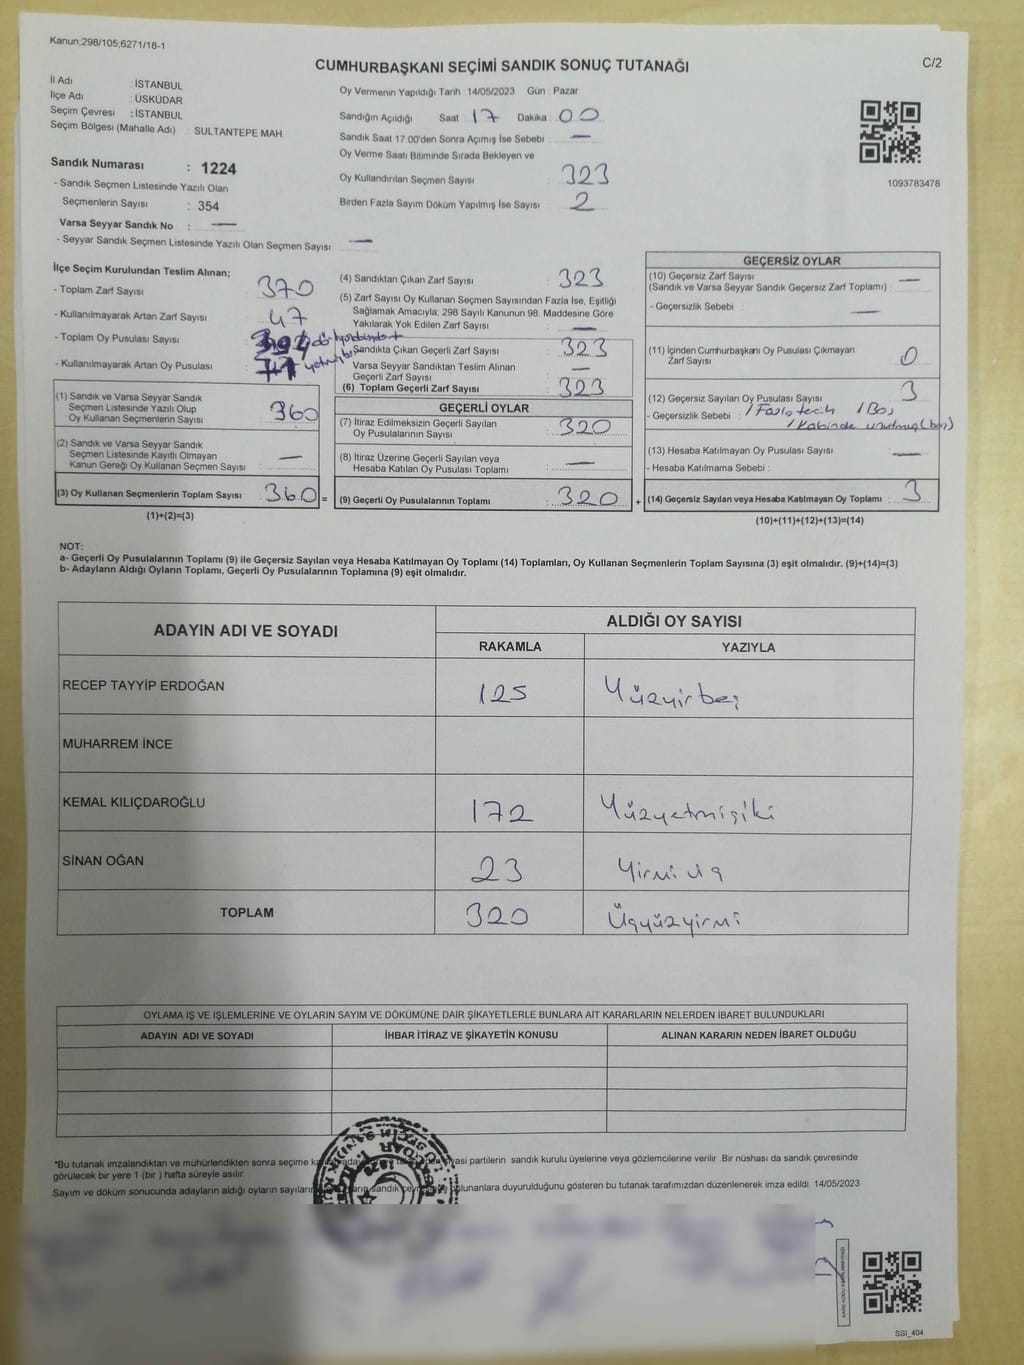 Kanun;298/105,6271/18-1
C/2
CUMHURBAŞKANI SEÇİMİ SANDIK SONUÇ TUTANAĞI
İl Adı : İSTANBUL
İlçe Adı : ÜSKÜDAR
Seçim Çevresi : İSTANBUL
Seçim Bölgesi (Mahalle Adı) : SULTANTEPE MAH.
Sandık Numarası : 1224
- Sandık Seçmen Listesinde Yazılı Olan
Seçmenlerin Sayısı : 354
Varsa Seyyar Sandık No : —
- Seyyar Sandık Seçmen Listesinde Yazılı Olan Seçmen Sayısı —
Oy Vermenin Yapıldığı Tarih : 14/05/2023 Gün : Pazar
Sandığın Açıldığı Saat 17 Dakika : 00
Sandık Saat 17.00'den Sonra Açımış İse Sebebi : —
Oy Verme Saati Bitiminde Sırada Bekleyen ve
Oy Kullandırılan Seçmen Sayısı : 323
Birden Fazla Sayım Döküm Yapılmış İse Sayısı : 2
1093783478
İlçe Seçim Kurulundan Teslim Alınan;
- Toplam Zarf Sayısı : 370
- Kullanılmayarak Artan Zarf Sayısı : 47
- Toplam Oy Pusulası Sayısı :
- Kullanılmayarak Artan Oy Pusulası :
(1) Sandık ve Varsa Seyyar Sandık
Seçmen Listesinde Yazılı Olup
Oy Kullanan Seçmenlerin Sayısı : 360
(2) Sandık ve Varsa Seyyar Sandık
Seçmen Listesinde Kayıtlı Olmayan
Kanun Gereği Oy Kullanan Seçmen Sayısı : —
(3) Oy Kullanan Seçmenlerin Toplam Sayısı : 360 =
(1)+(2)=(3)
(4) Sandıktan Çıkan Zarf Sayısı : 323
(5) Zarf Sayısı Oy Kullanan Seçmen Sayısından Fazla İse, Eşitliği
Sağlamak Amacıyla, 298 Sayılı Kanunun 98. Maddesine Göre
Yakılarak Yok Edilen Zarf Sayısı : —
Sandıkta Çıkan Geçerli Zarf Sayısı : 323
Varsa Seyyar Sandıktan Teslim Alınan
Geçerli Zarf Sayısı : —
(6) Toplam Geçerli Zarf Sayısı : 323
GEÇERLİ OYLAR
(7) İtiraz Edilmeksizin Geçerli Sayılan
Oy Pusulalarının Sayısı : 320
(8) İtiraz Üzerine Geçerli Sayılan veya
Hesaba Katılan Oy Pusulası Toplamı : —
(9) Geçerli Oy Pusulalarının Toplamı : 320 +
GEÇERSİZ OYLAR
(10) Geçersiz Zarf Sayısı : —
(Sandık ve Varsa Seyyar Sandık Geçersiz Zarf Toplamı) :
- Geçersizlik Sebebi : —
(11) İçinden Cumhurbaşkanı Oy Pusulası Çıkmayan
Zarf Sayısı : 0
(12) Geçersiz Sayılan Oy Pusulası Sayısı : 3
- Geçersizlik Sebebi : 1 Fazla tecih 1 Boş
1 Kabinde unutmuş (boş)
(13) Hesaba Katılmayan Oy Pusulası Sayısı : —
- Hesaba Katılmama Sebebi :
(14) Geçersiz Sayılan veya Hesaba Katılmayan Oy Toplamı : 3
(10)+(11)+(12)+(13)=(14)
NOT:
a- Geçerli Oy Pusulalarının Toplamı (9) ile Geçersiz Sayılan veya Hesaba Katılmayan Oy Toplamı (14) Toplamları, Oy Kullanan Seçmenlerin Toplam Sayısına (3) eşit olmalıdır. (9)+(14)=(3)
b- Adayların Aldığı Oyların Toplamı, Geçerli Oy Pusulalarının Toplamına (9) eşit olmalıdır.
ADAYIN ADI VE SOYADI ALDIĞI OY SAYISI
RAKAMLA YAZIYLA
RECEP TAYYİP ERDOĞAN 125 Yüzyirbeş
MUHARREM İNCE
KEMAL KILIÇDAROĞLU 172 Yüzyetmişiki
SİNAN OĞAN 23 Yirmi üç
TOPLAM 320 Üçyüzyirmi
OYLAMA İŞ VE İŞLEMLERİNE VE OYLARIN SAYIM VE DÖKÜMÜNE DAİR ŞİKAYETLERLE BUNLARA AİT KARARLARIN NELERDEN İBARET BULUNDUKLARI
ADAYIN ADI VE SOYADI İHBAR İTİRAZ VE ŞİKAYETİN KONUSU ALINAN KARARIN NEDEN İBARET OLDUĞU
*Bu tutanak imzalandıktan ve mühürlendikten sonra seçime partilerin sandık kurulu üyelerine veya gözlemcilerine verilir .Bir nüshası da sandık çevresinde
görülecek bir yere 1 (bir ) hafta süreyle asılır.
Sayım ve döküm sonucunda adayların aldığı oyların sayıların sandık bulunanlara duyurulduğunu gösteren bu tutanak tarafımızdan düzenlenerek imza edildi. 14/05/2023
SSI_404